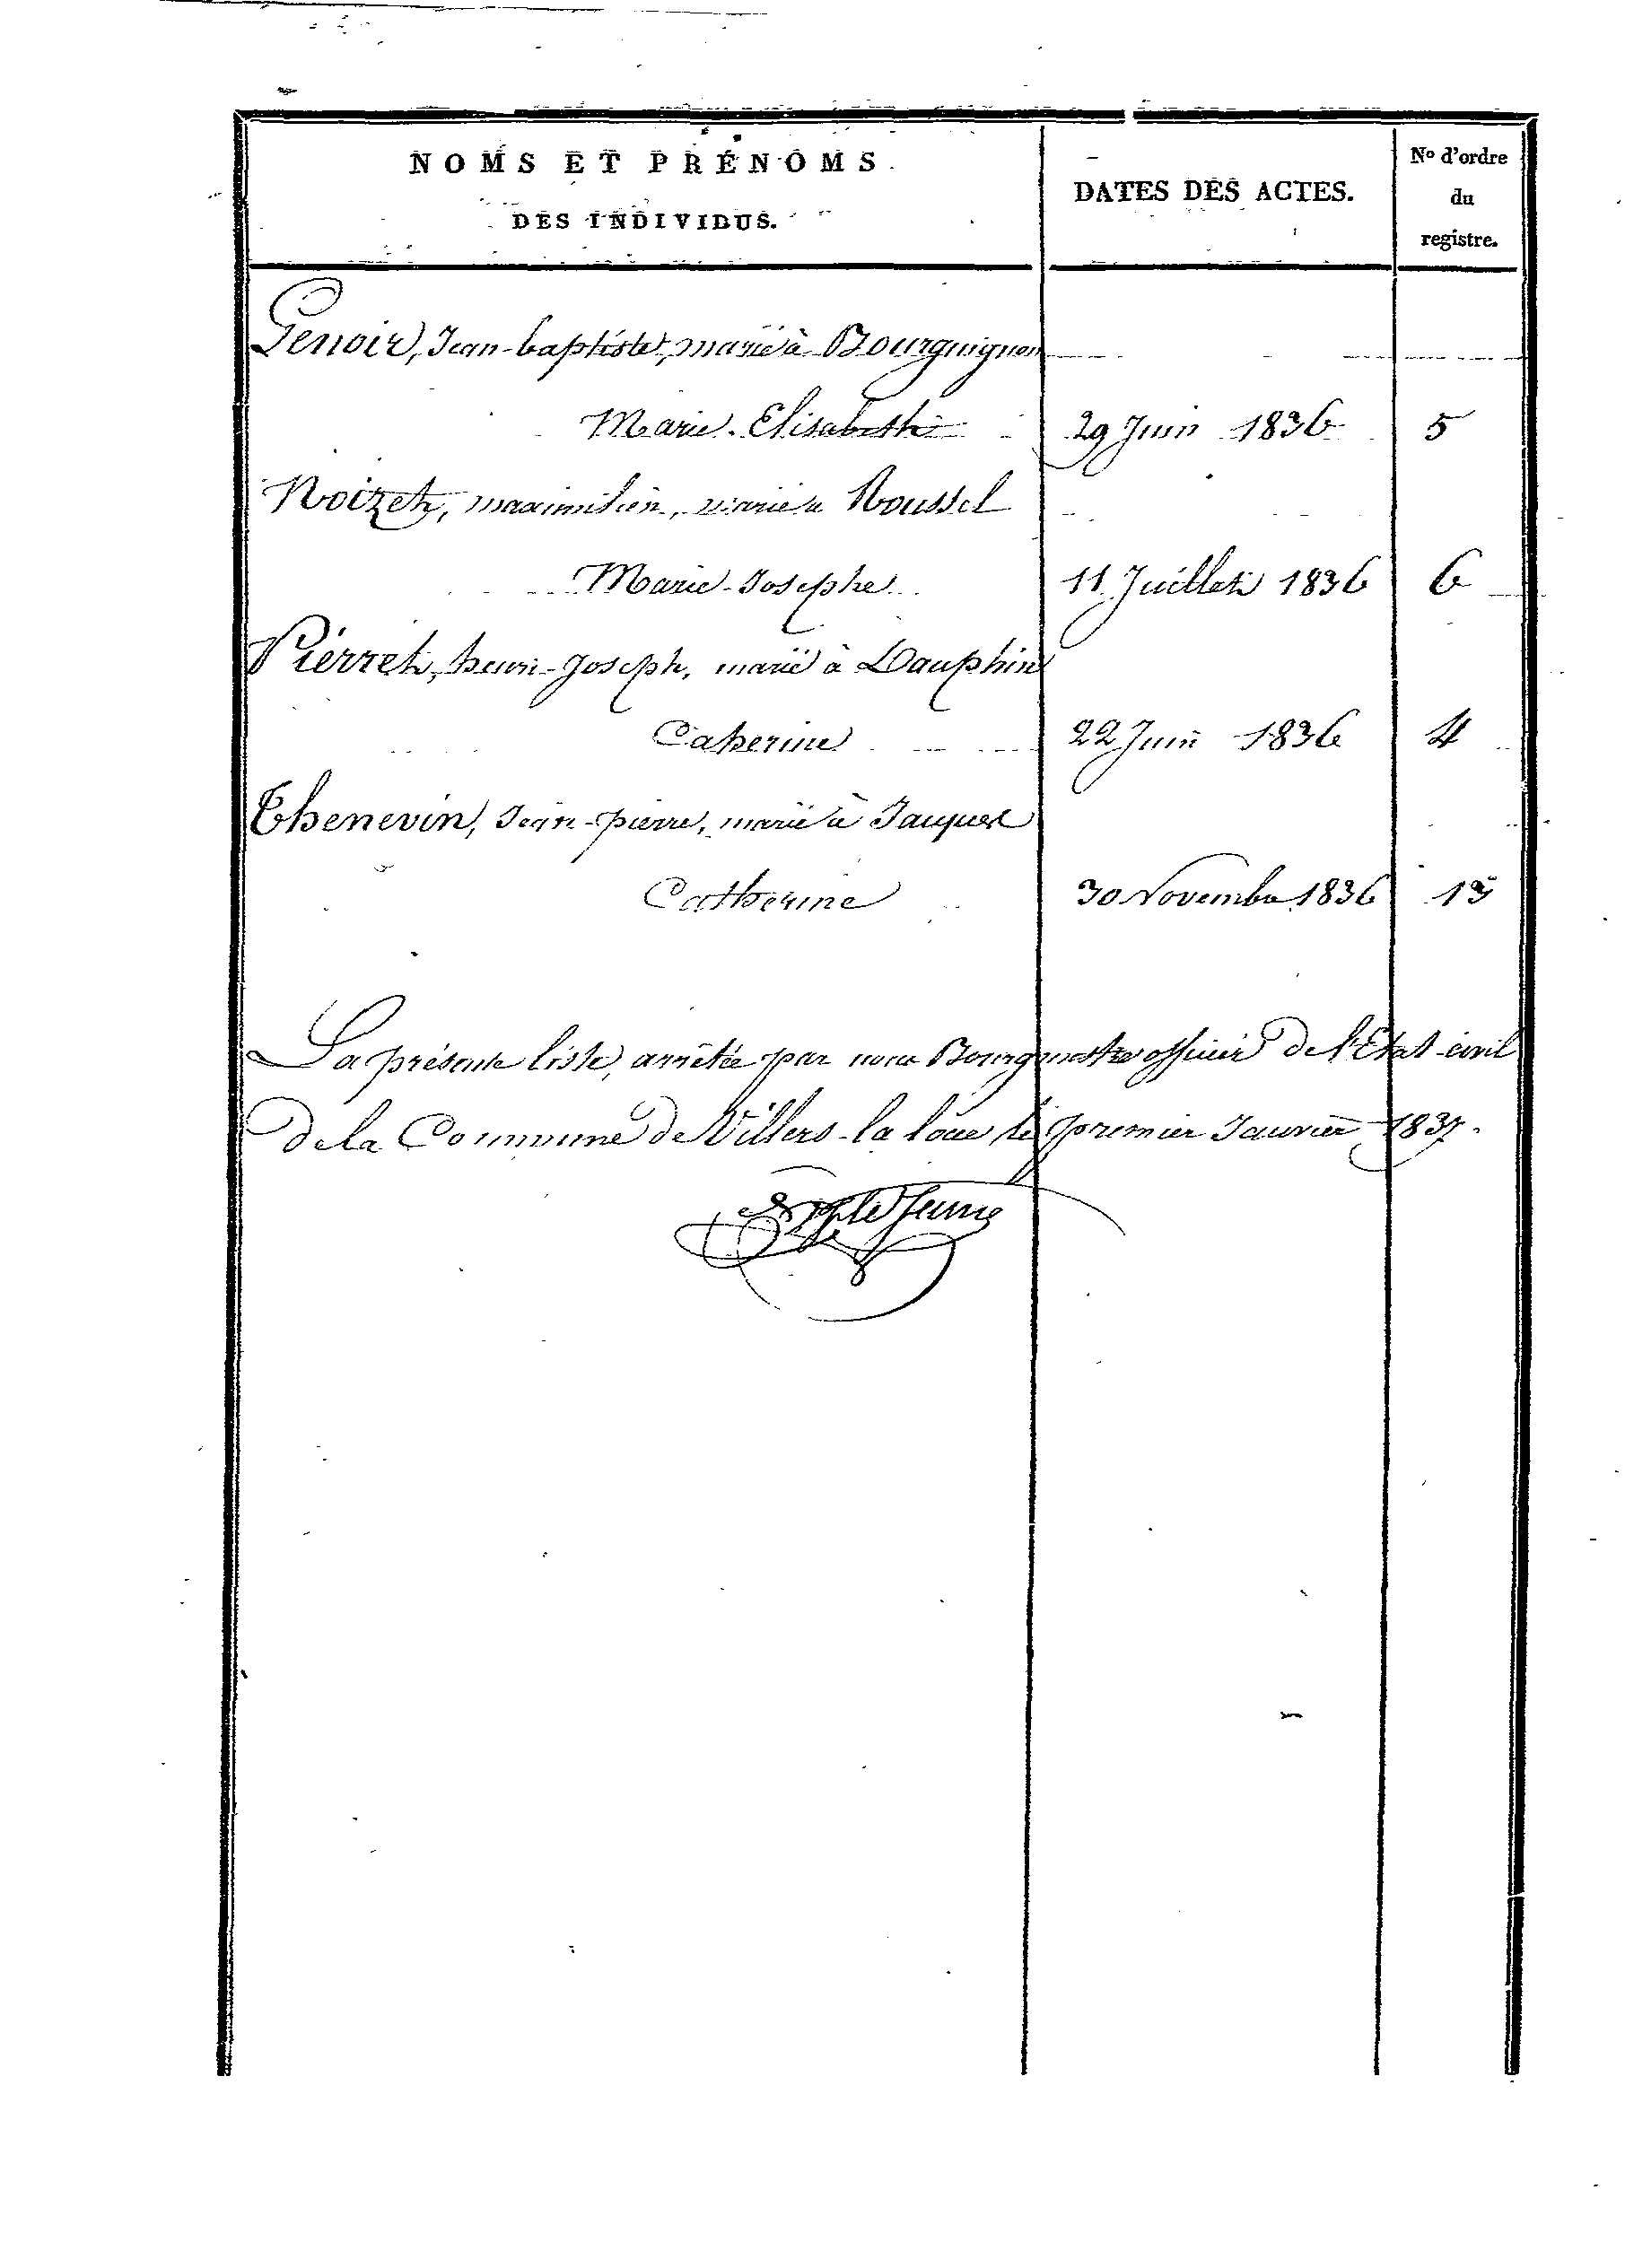 NOMS ET PRÉNOMS
DES INDIVIDUS.
DATES DES ACTES.
No d'ordre
du
registre.
Lenoir, Jean-baptiste, marié à Bourguignon
Marie-Elisabeth 29 Juin 1836 5
Noizet, maximilien, marié à Roussel
Marie-Josephe 11 Juillet 1836 6
Pierret, henri-Joseph, marié à Dauphin
Caherine 22 Juin 1836 4
Thenevin, Jean-pierre, marié à Jauques
Catherine 30 Novembre 1836 13
La présente liste, arrêtée par nous Bourgmestre officier de l'Etat-civil
de la Commune de Villers-la loue le premier Janvier 1837.